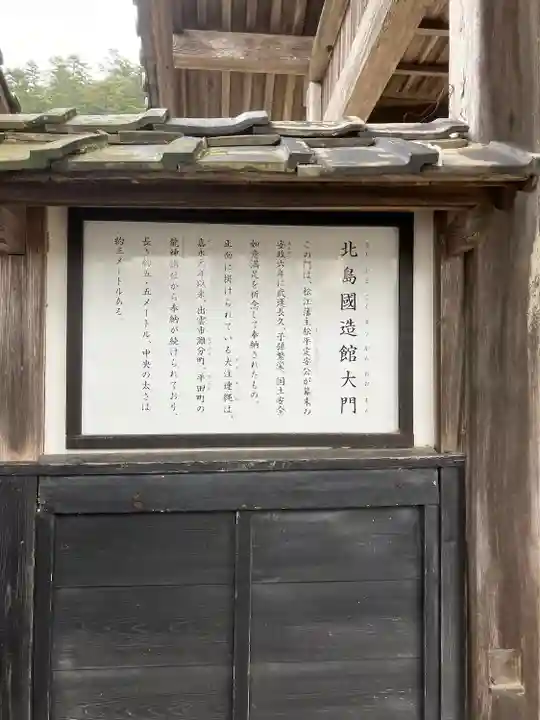 北島國造館大門
この門は、松江藩主松平定安公が幕末の
安政六年に武運長久、子孫繁栄、国土安全
如意満足を祈念して奉納されたもの。
正面に掛けられている大注連縄は、
嘉永元年以来、出雲市灘分町、平田町の
龍神講社から奉納が続けられており、
長さ約五・五メートル、中央の太さは
約三メートルある。